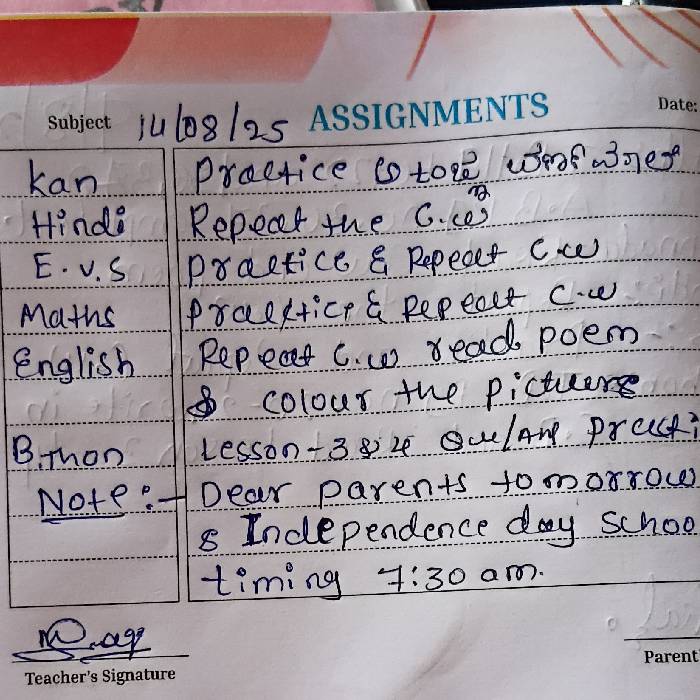 Subject 14/08/25 ASSIGNMENTS Date:
Kan Practice
Hindi Repeat the C.w
E.V.S Practice & Repeat C.w
Maths Practice & Repeat C.w
English Repeat C.w read poem
& colour the picture
B.thon Lesson-3 & 4 Que/Ans Practi
Note:- Dear parents tomorrow
s Independence day Schoo
timing 7:30 am.
Teacher's Signature Parent